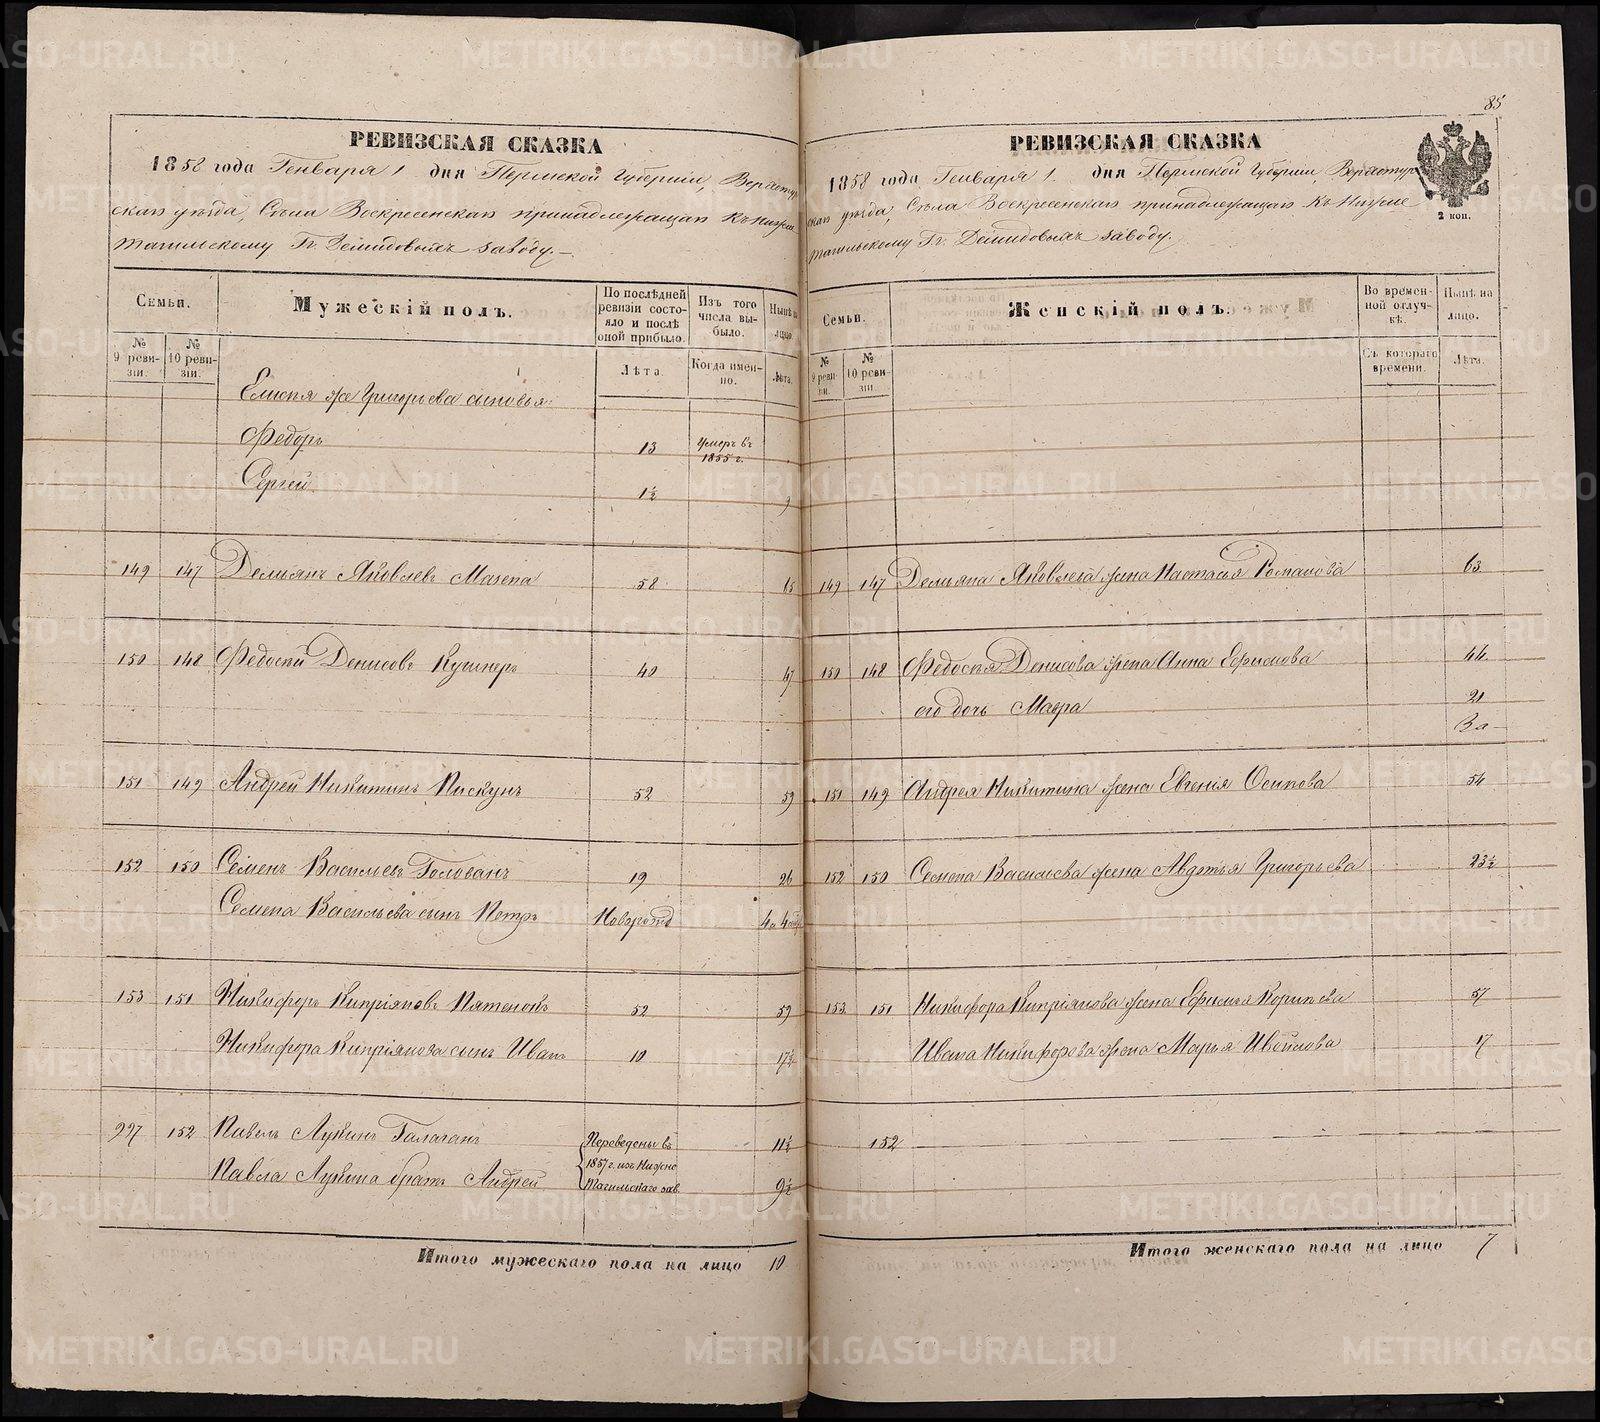 85
РЕВИЗСКАЯ СКАЗКА
1858 года Генваря 1 дня Пермской Губернии, Верхотур
скаго уѣзда, Села Воскресенскаго принадлежащаго къ Нижне
тагильскому Гг. Демидовыхъ заводу.
Семьи.
№ 9 ревизіи.
№ 10 ревизіи.
Мужескій полъ.
По послѣдней ревизіи состояло и послѣ оной прибыло.
Лѣта
Изъ того числа выбыло.
Когда именно.
Нынѣ на лицо.
Лѣта.
же Григорьева сыновья:
Федоръ 13 умеръ въ 1855 г.
Сергей 1½ 9
149 147 Демьянъ Яковлевъ Мазепа 58 65
150 148 Федосѣй Денисовъ Кушнеръ 40 47
151 149 Андрей Никитинъ Пискунъ 52 59
152 150 Семенъ Васильевъ Голованъ 19 26
Семена Васильева сынъ Петръ Новорожд
153 151 Никифоръ Кипріяновъ Пятенокъ 52 59
Никифора Кипріянова сынъ Иванъ 10 17½
997 152 Павелъ Лукинъ Галаганъ 11½
Павла Лукина братъ Андрей 9½
Переведены въ
1857 г. изъ Нижне
Тагильскаго зав.
Итого мужескаго пола на лицо 10
РЕВИЗСКАЯ СКАЗКА
1858 года Генваря 1 дня Пермской Губерніи, Верхотур
скаго уѣзда, Села Воскресенскаго принадлежащаго къ Нижне
тагильскому Гг. Демидовыхъ заводу.
2 коп.
Семьи.
№ 9 ревизіи.
№ 10 ревизіи.
Женскій полъ.
Во временной отлучкѣ.
Съ котораго времени.
Нынѣ на лицо.
Лѣта.
149 147 Демьяна Яковлева жена Настасья Романова 63
150 148 Федосѣя Денисова жена Анна Ефимова 44
его дочь Мавра 21
151 149 Андрея Никитина жена Евгенія Осипова 54
152 150 Семена Васильева жена Авдотья Григорьева 23½
153 151 Никифора Кипріянова жена Ефимья
Ивана Никифорова жена Марья 17
152
Итого женскаго пола на лицо 7
METRIKI.GASO-URAL.RU